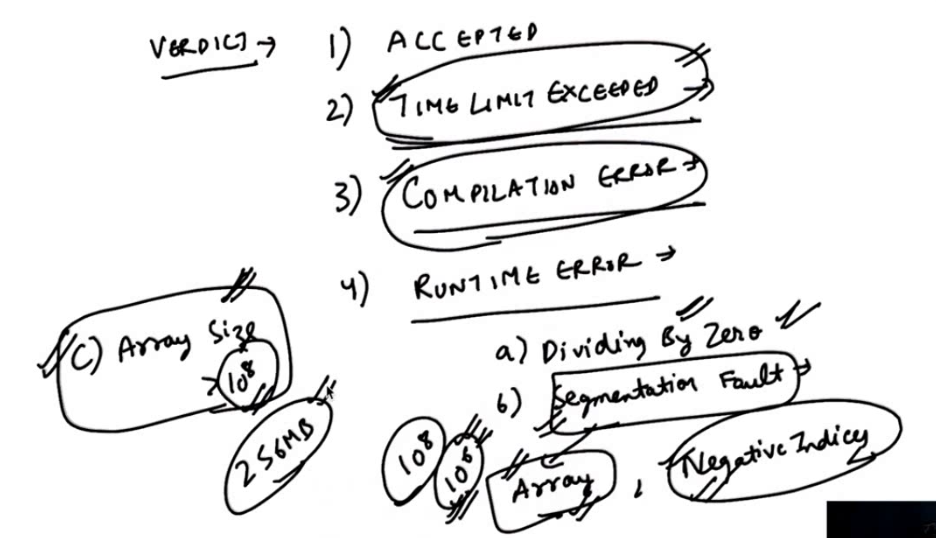 VERDICT → 1) ACCEPTED
2) TIME LIMIT EXCEEDED →
3) COMPILATION ERROR →
4) RUNTIME ERROR →
a) Dividing By Zero
b) Segmentation Fault →
Array, Negative Indices
10⁸ 10⁶
c) Array Size
> 10⁸
256MB